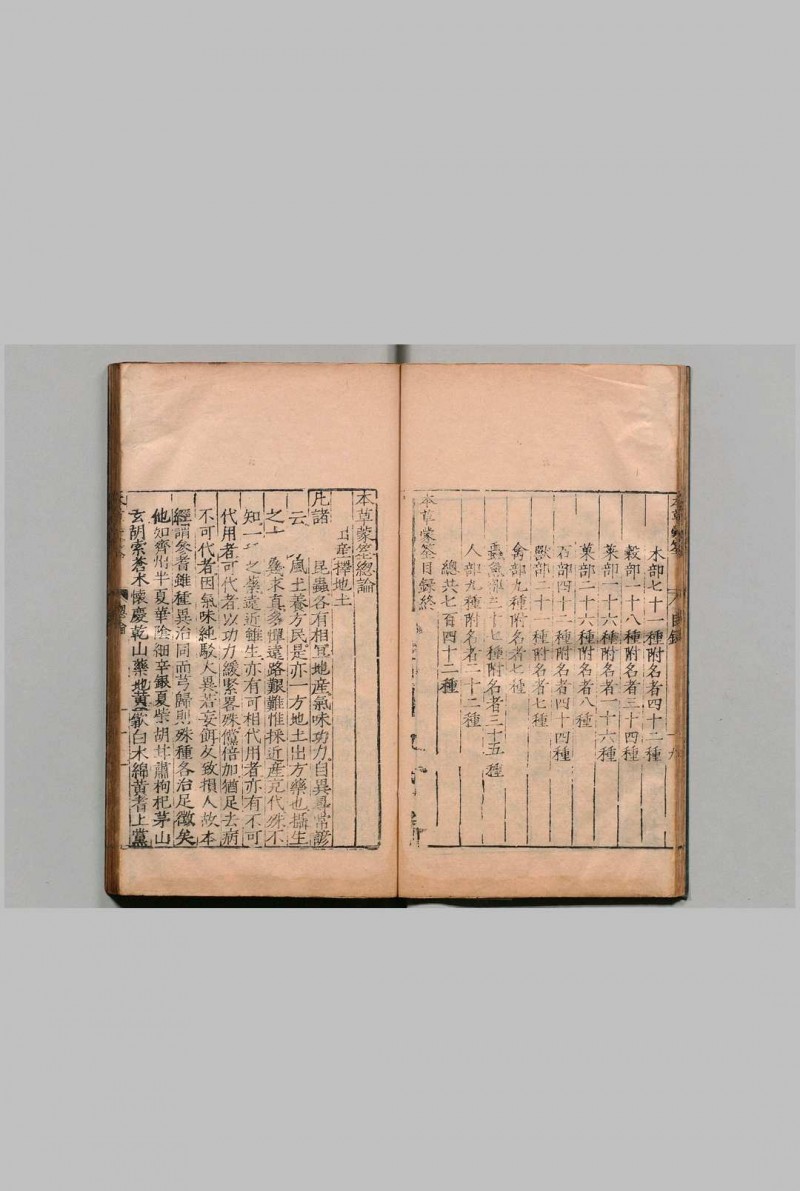 木部七十一種附名者四十二種
穀部一十八種附名者三十四種
菜部一十六種附名者一十六種
菓部二十六種附名者八種
石部四十二種附名者四十四種
獸部二十一種附名者七種
禽部九種附名者七種
蟲魚部三十七種附名者三十五種
人部九種附名者二十二種
總共七百四十二種
本草蒙筌目録終
本草蒙筌總論
出産擇地土
凡諸 昆蟲各有相冝地産氣味功力自異尋常諺
云 風土養方民是亦一方地土出方藥也攝生
之 真多憚遠路艱難惟採近産充代殊不
知一 之藥遠近雖生亦有可相代用者亦有不可
代用者可代者以功力緩緊畧殊儻倍加猶足去病
不可代者因氣味純駁大異若妄餌反致損人故本
經謂參耆雖種異治同而芎歸則殊種各治足徵矣
他如齊州半夏華陰細辛銀夏柴胡甘肅枸杞茅山
玄胡索蒼术懷慶乾山藥地黄歙白术綿黄耆上黨